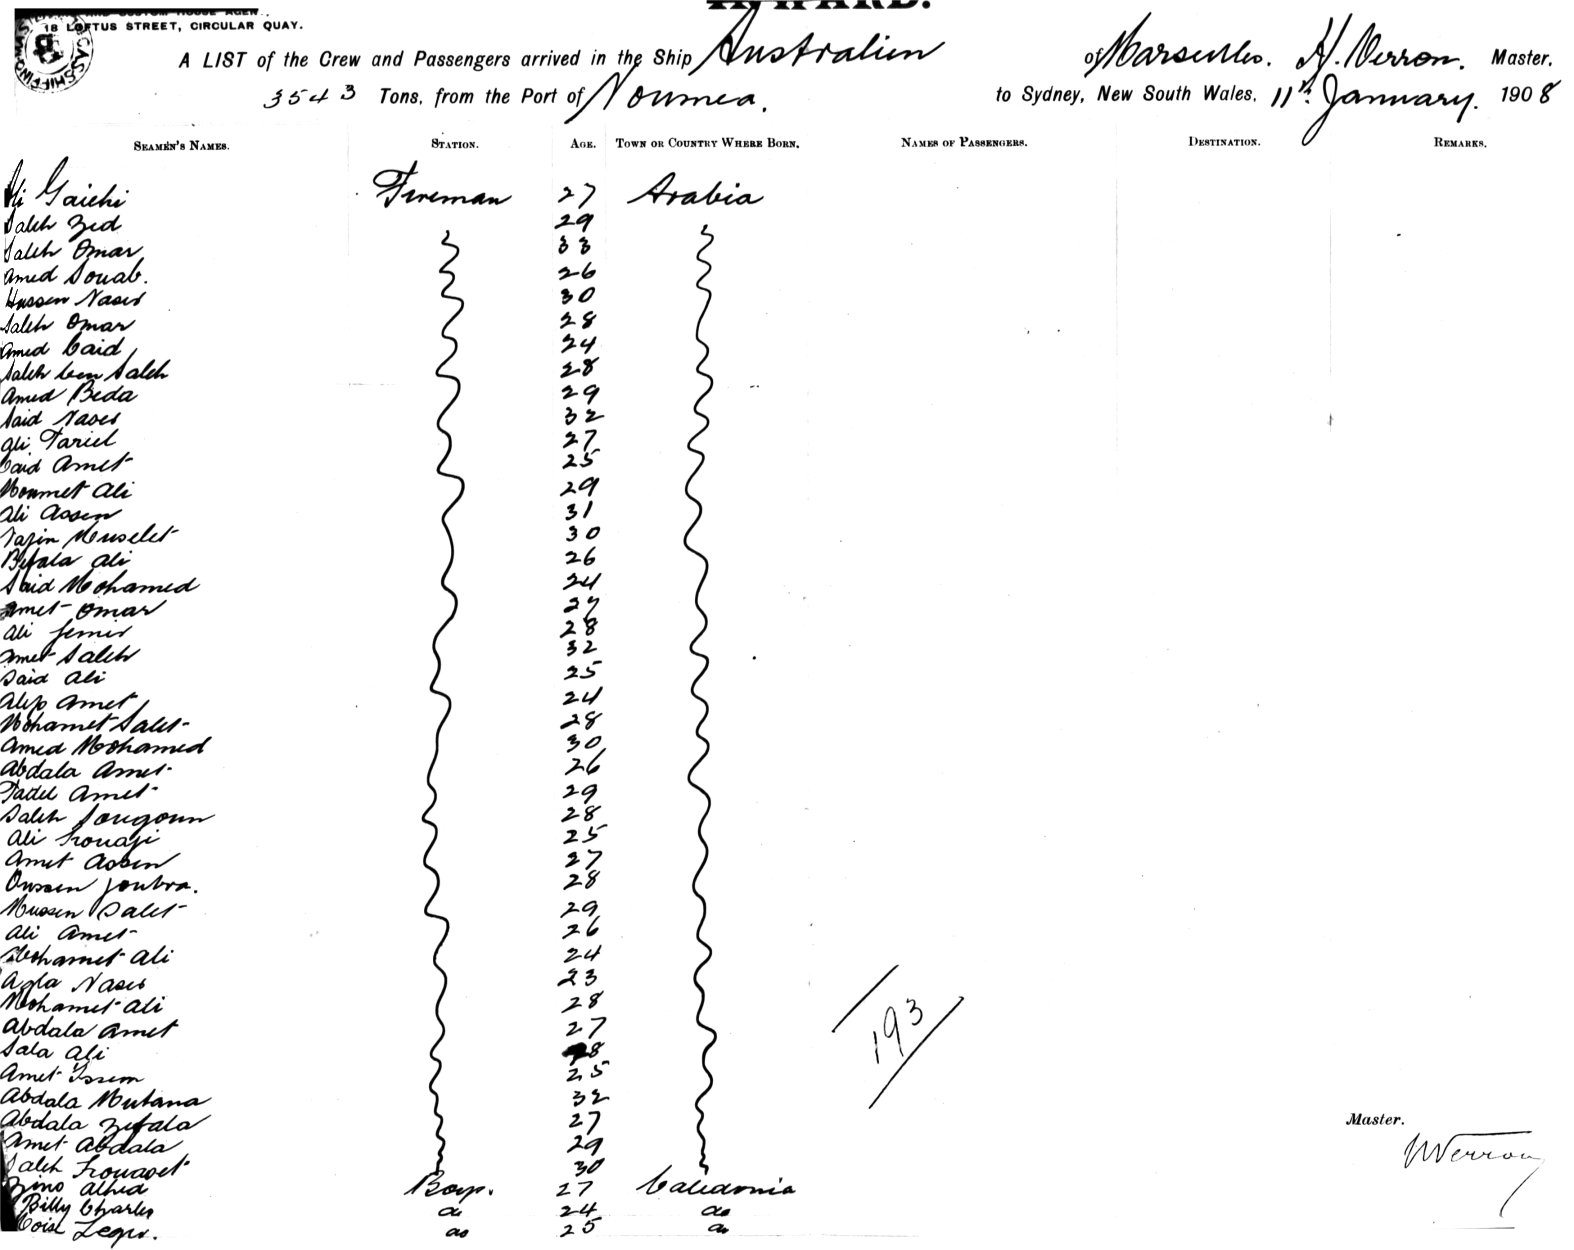 18 LOFTUS STREET, CIRCULAR QUAY.
A LIST of the Crew and Passengers arrived in the Ship Australien of Marseilles. H. Verron. Master.
3543 Tons, from the Port of Noumea. to Sydney, New South Wales, 11th January. 1908
SEAMEN'S NAMES. STATION. AGE. TOWN OR COUNTRY WHERE BORN. NAMES OF PASSENGERS. DESTINATION. REMARKS.
Ali Gaichi Fireman 27 Arabia
Saleh Zed 29
Saleh Omar 33
Amed Souab. 26
Hassen Naser 30
Saleh Omar 28
Amed Caid 24
Saleh ben Saleh 28
Amed Beda 29
Said Naser 32
Ali Tariel 27
Caid Amet 25
Moumet Ali 29
Ali Assen 31
Muselet 30
Ali 26
Said Mohamed 24
Amet Omar 27
Ali 28
Amet Saleh 32
Said Ali 25
Amet 24
Mohamet Salet 28
Amed Mohamed 30
Abdala Amet 26
Amet 29
Saleh Sougoun 28
Ali 25
Amet Assen 27
Oussen Joubra. 28
Mussen Salet 29
Ali Amet 26
Mohamet Ali 24
Naser 23
Mohamet Ali 28
Abdala Amet 27
Sala Ali 28
Amet Issem 25
Abdala Mutana 32
Abdala Zefala 27
Amet Abdala 29
Saleh 30
Boy. 27 Caledonia
Billy Charles do 24 do
do 25 do
193
Master.
H Verron